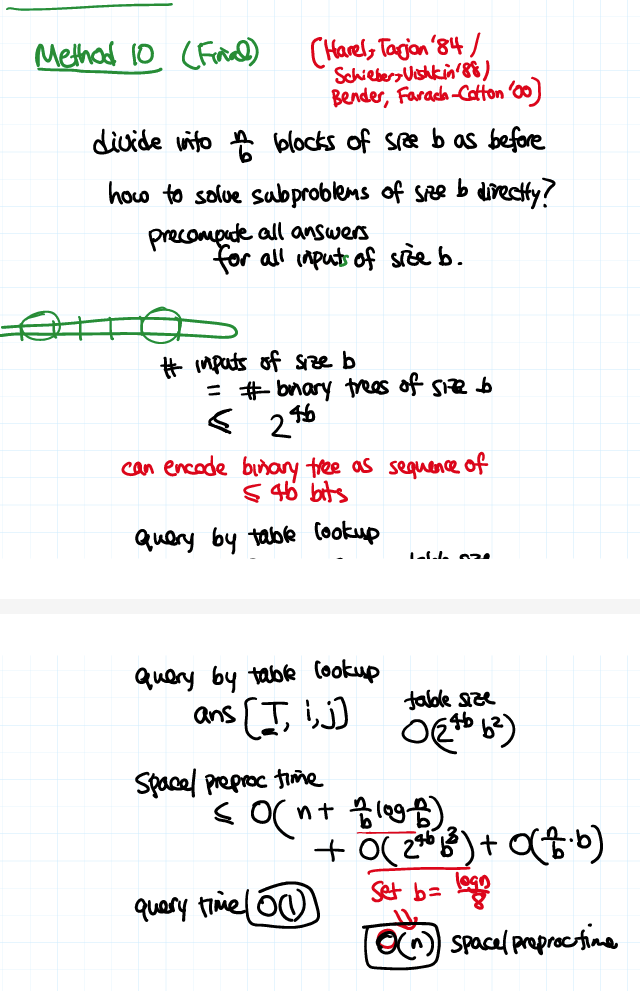 Method 10 (Final)
(Harel, Tarjan '84 /
Schieber, Vishkin '88 /
Bender, Farach-Colton '00)
divide into n/b blocks of size b as before
how to solve subproblems of size b directly?
precompute all answers
for all inputs of size b.
# inputs of size b
= # binary trees of size b
≤ 2^{4b}
can encode binary tree as sequence of
≤ 4b bits
query by table lookup
table size
query by table lookup
ans [T, i, j]
table size
O(2^{4b} b^2)
Space/preproc time
≤ O(n + n/b log n/b)
+ O(2^{4b} b^3) + O(n/b · b)
set b = log n/8
query time O(1)
O(n) space/preproc time